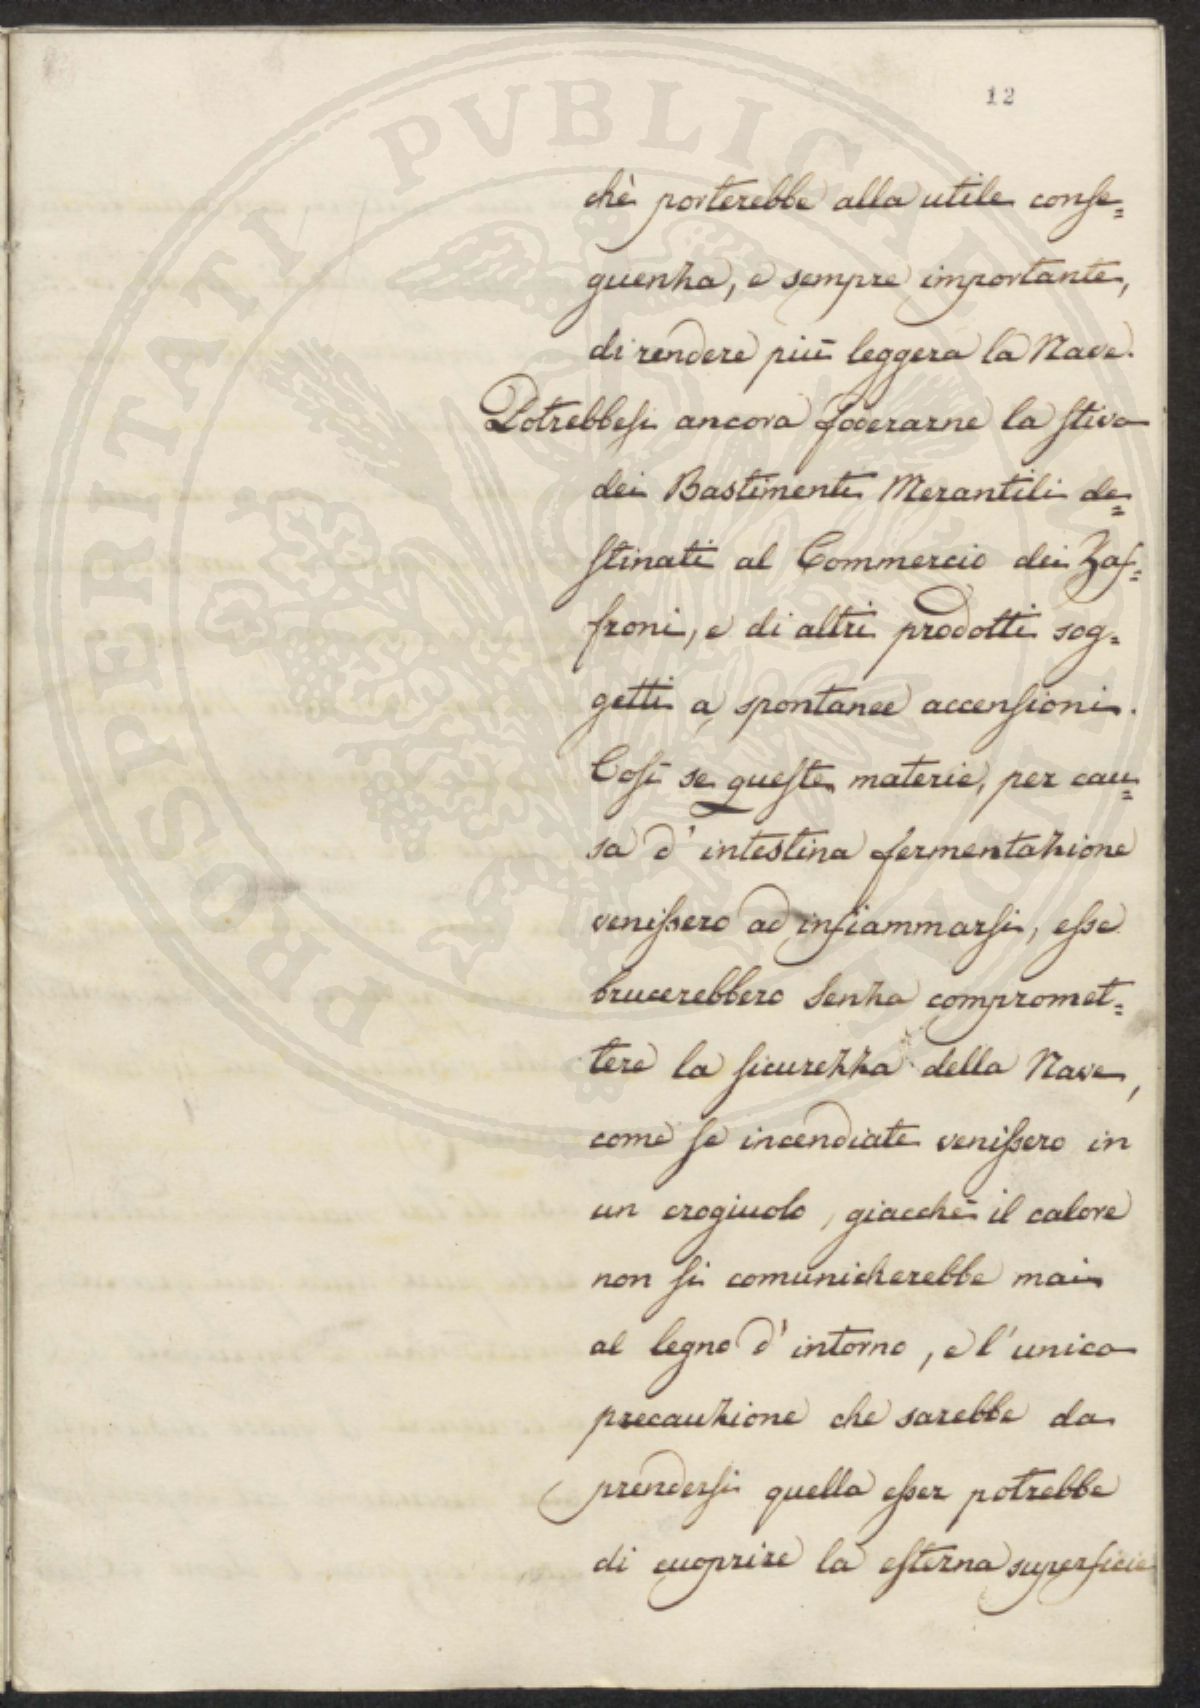 12
chè porterebbe alla utile conse=
guenza, e sempre importante,
di rendere più leggera la Nave.
Potrebbesi ancora foderarne la stiva
dei Bastimenti Merantili de=
stinati al Commercio dei Zaf=
froni, e di altri prodotti sog=
getti a spontanee accensioni.
Così se queste materie, per cau=
sa d' intestina fermentazione
venissero ad infiammarsi, esse
brucerebbero senza compromet=
tere la sicurezza della Nave,
come se incendiate venissero in
un crogiuolo, giacchè il calore
non si comunicherebbe mai
al legno d' intorno, e l' unica
precauzione che sarebbe da
prendersi quella esser potrebbe
di cuoprire la esterna superficie
PROSPERITATI PVBLICAE